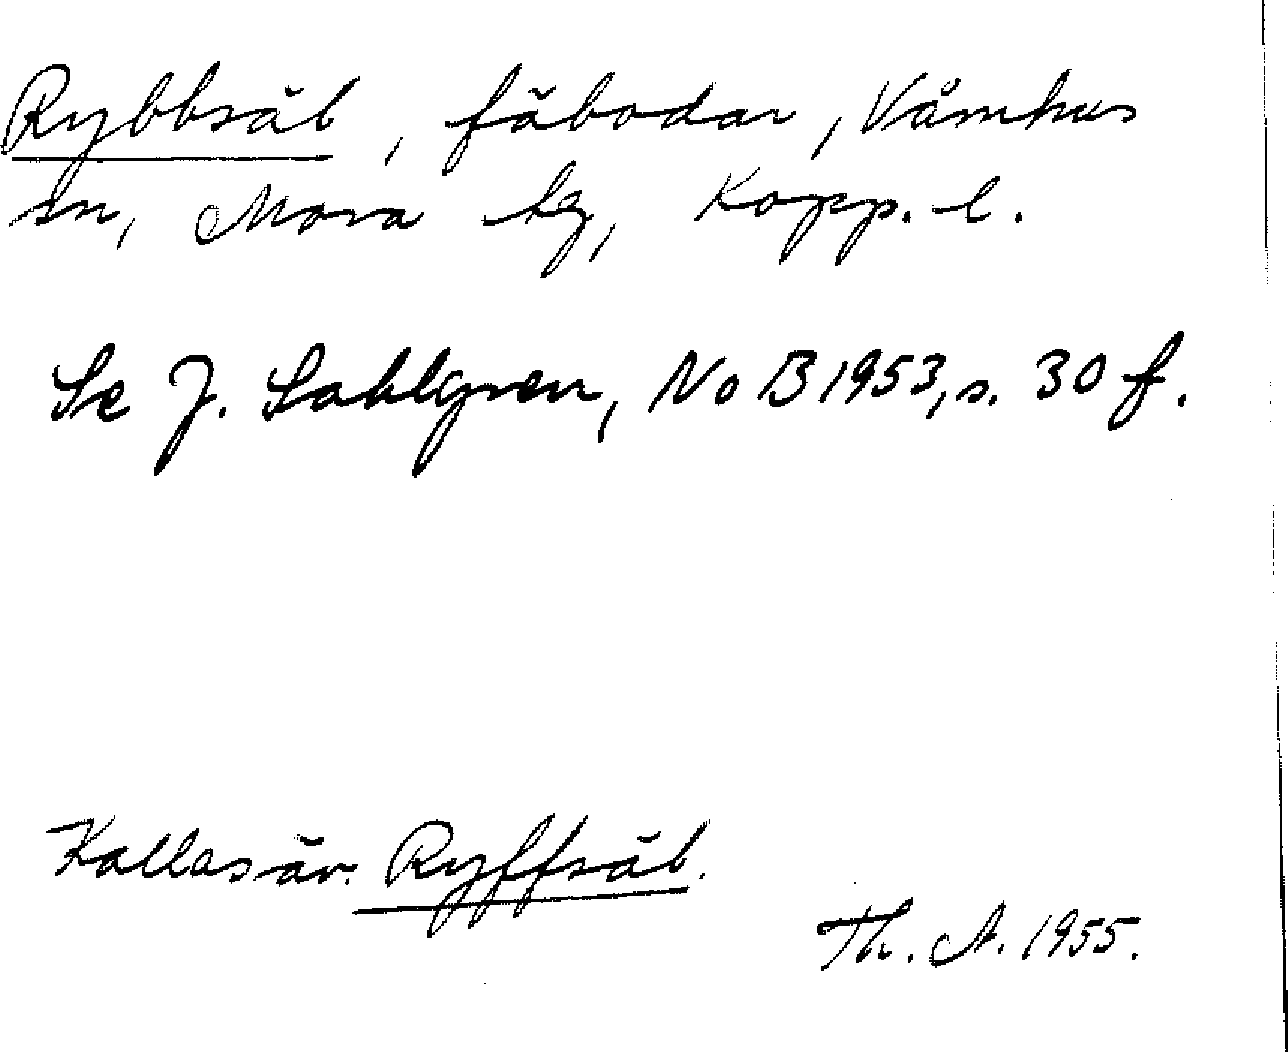 Rybbsäl, fäbodar, Våmhus
sn, Mora tg, Kopp. l.
Se J. Sahlgren, NoB 1953, s. 30 f.
Kallas äv. Ryffsäl.
Th. A. 1955.